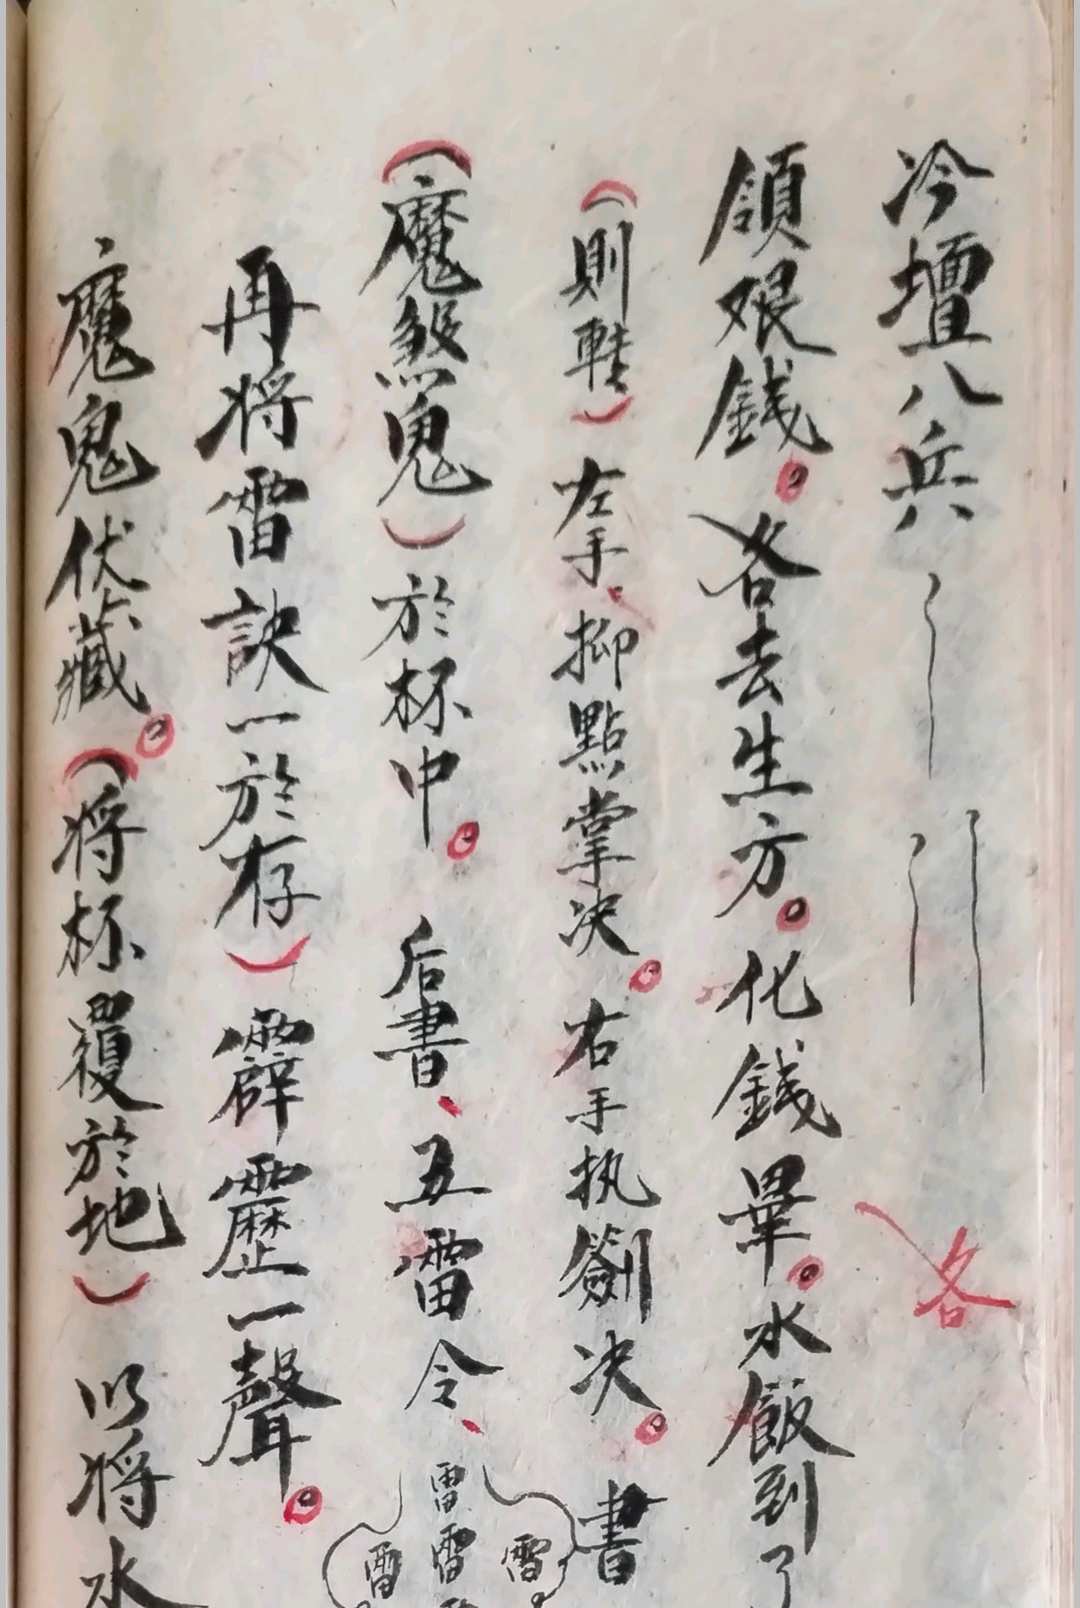 冷壇八兵 各
領艮錢。各去生方。化錢畢。水飯到了
(則鞋)左手、抑點掌决。右手执劍决。書
(魔煞鬼)於杯中。后書、五雷令、雷雷雷雷
再将雷訣一於存)霹靂一聲。
魔鬼伏藏。(将杯覆於地)以将水